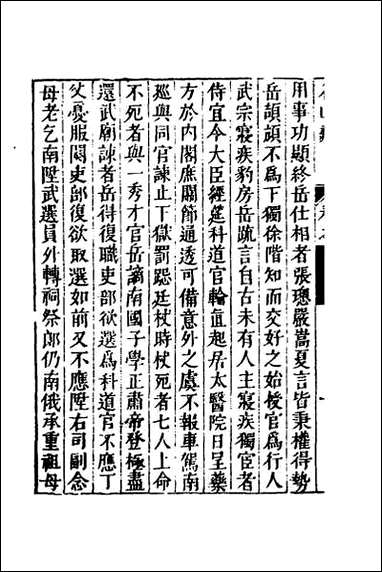 用事功顯終岳仕相者張璁嚴嵩夏言皆秉權得勢
岳頡頏不爲下獨徐階知而交好之始授官爲行人
武宗寢疾豹房岳疏言自古未有人主寢疾獨宦者
侍宜今大臣經筵科道官輪直起居太醫院日呈藥
方於內閣庶關節通透可備意外之虞不報車駕南
廵與同官諫止下獄罰跽廷杖時杖死者七人上命
不死者與一秀才官岳謫南國子學正肅帝登極盡
還武廟諫者岳得復職吏部欲選爲科道官不應丁
父憂服闋吏部復欲取選如前又不應陞右司副念
母老乞南陞武選員外轉祠祭郎仍南俄承重祖母